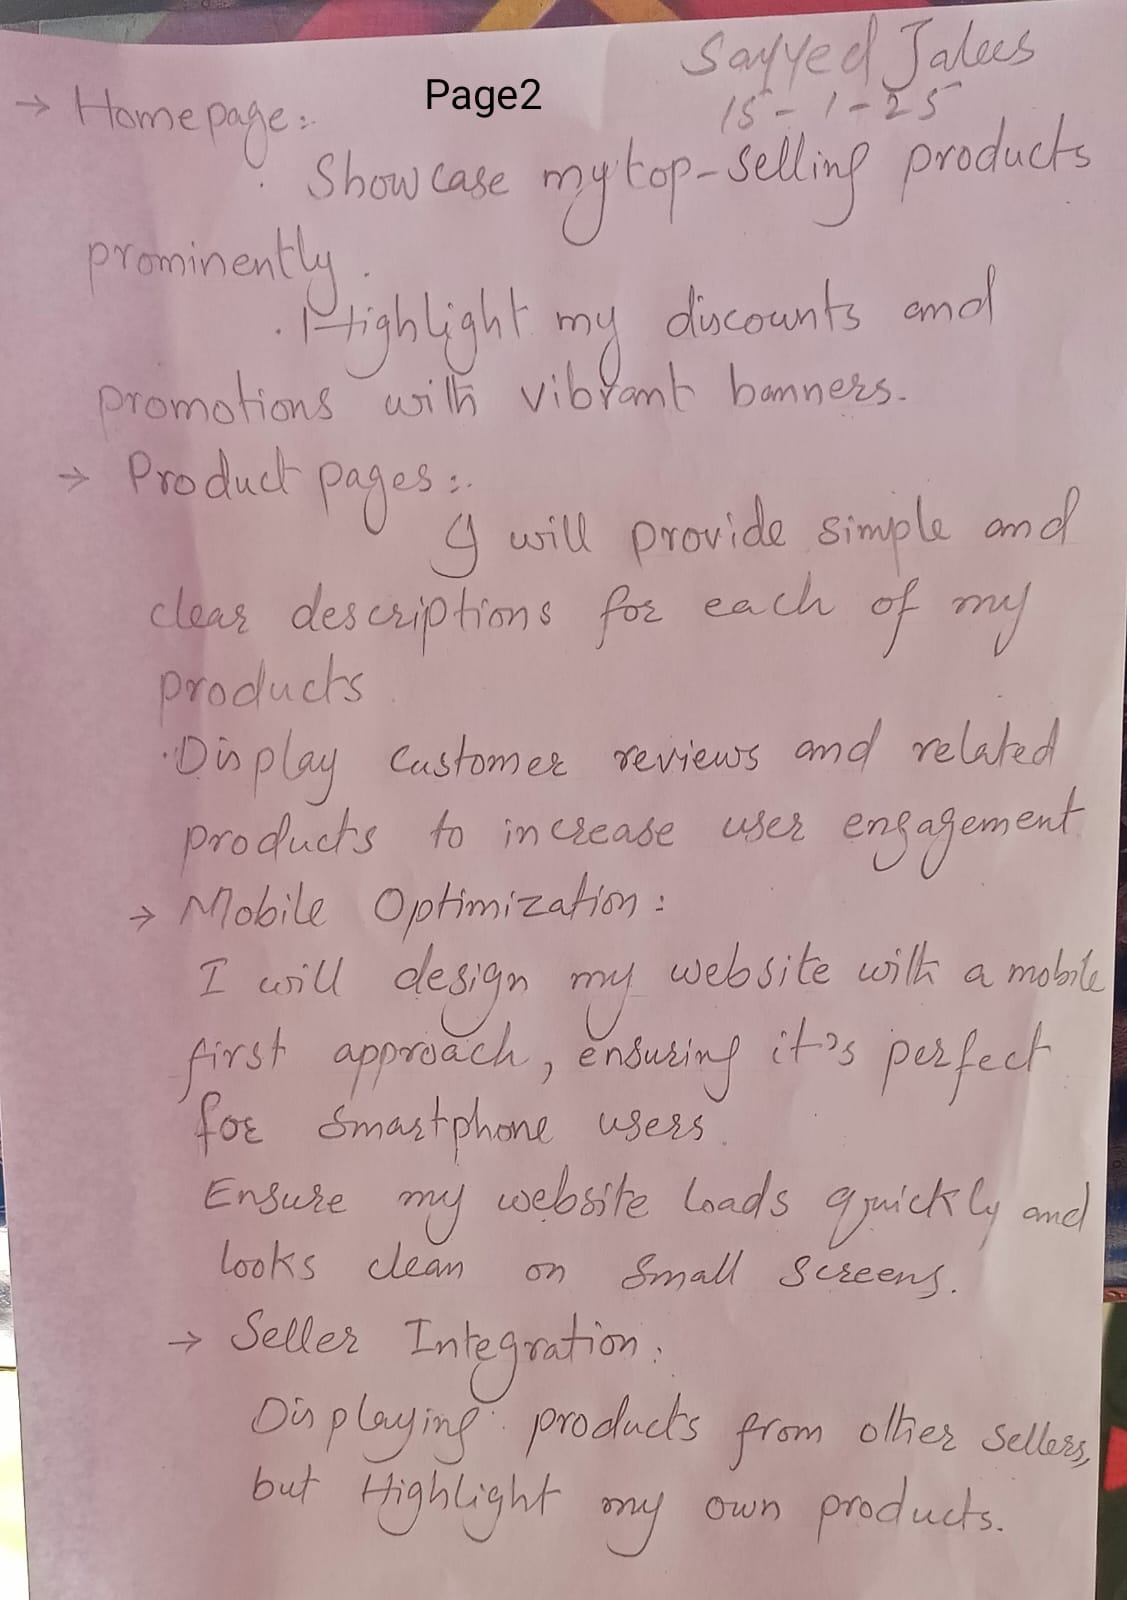 Sayyed Jalees
Page2
15-1-25
→ Homepage:-
· Showcase my top-selling products
prominently.
· Highlight my discounts and
promotions with vibrant banners.
→ Product pages:-
I will provide simple and
clear descriptions for each of my
products.
· Display customer reviews and related
products to increase user engagement
→ Mobile Optimization:
I will design my website with a mobile
first approach, ensuring it's perfect
for smartphone users.
Ensure my website loads quickly and
looks clean on small screens.
→ Seller Integration:
Displaying products from other sellers,
but Highlight my own products.